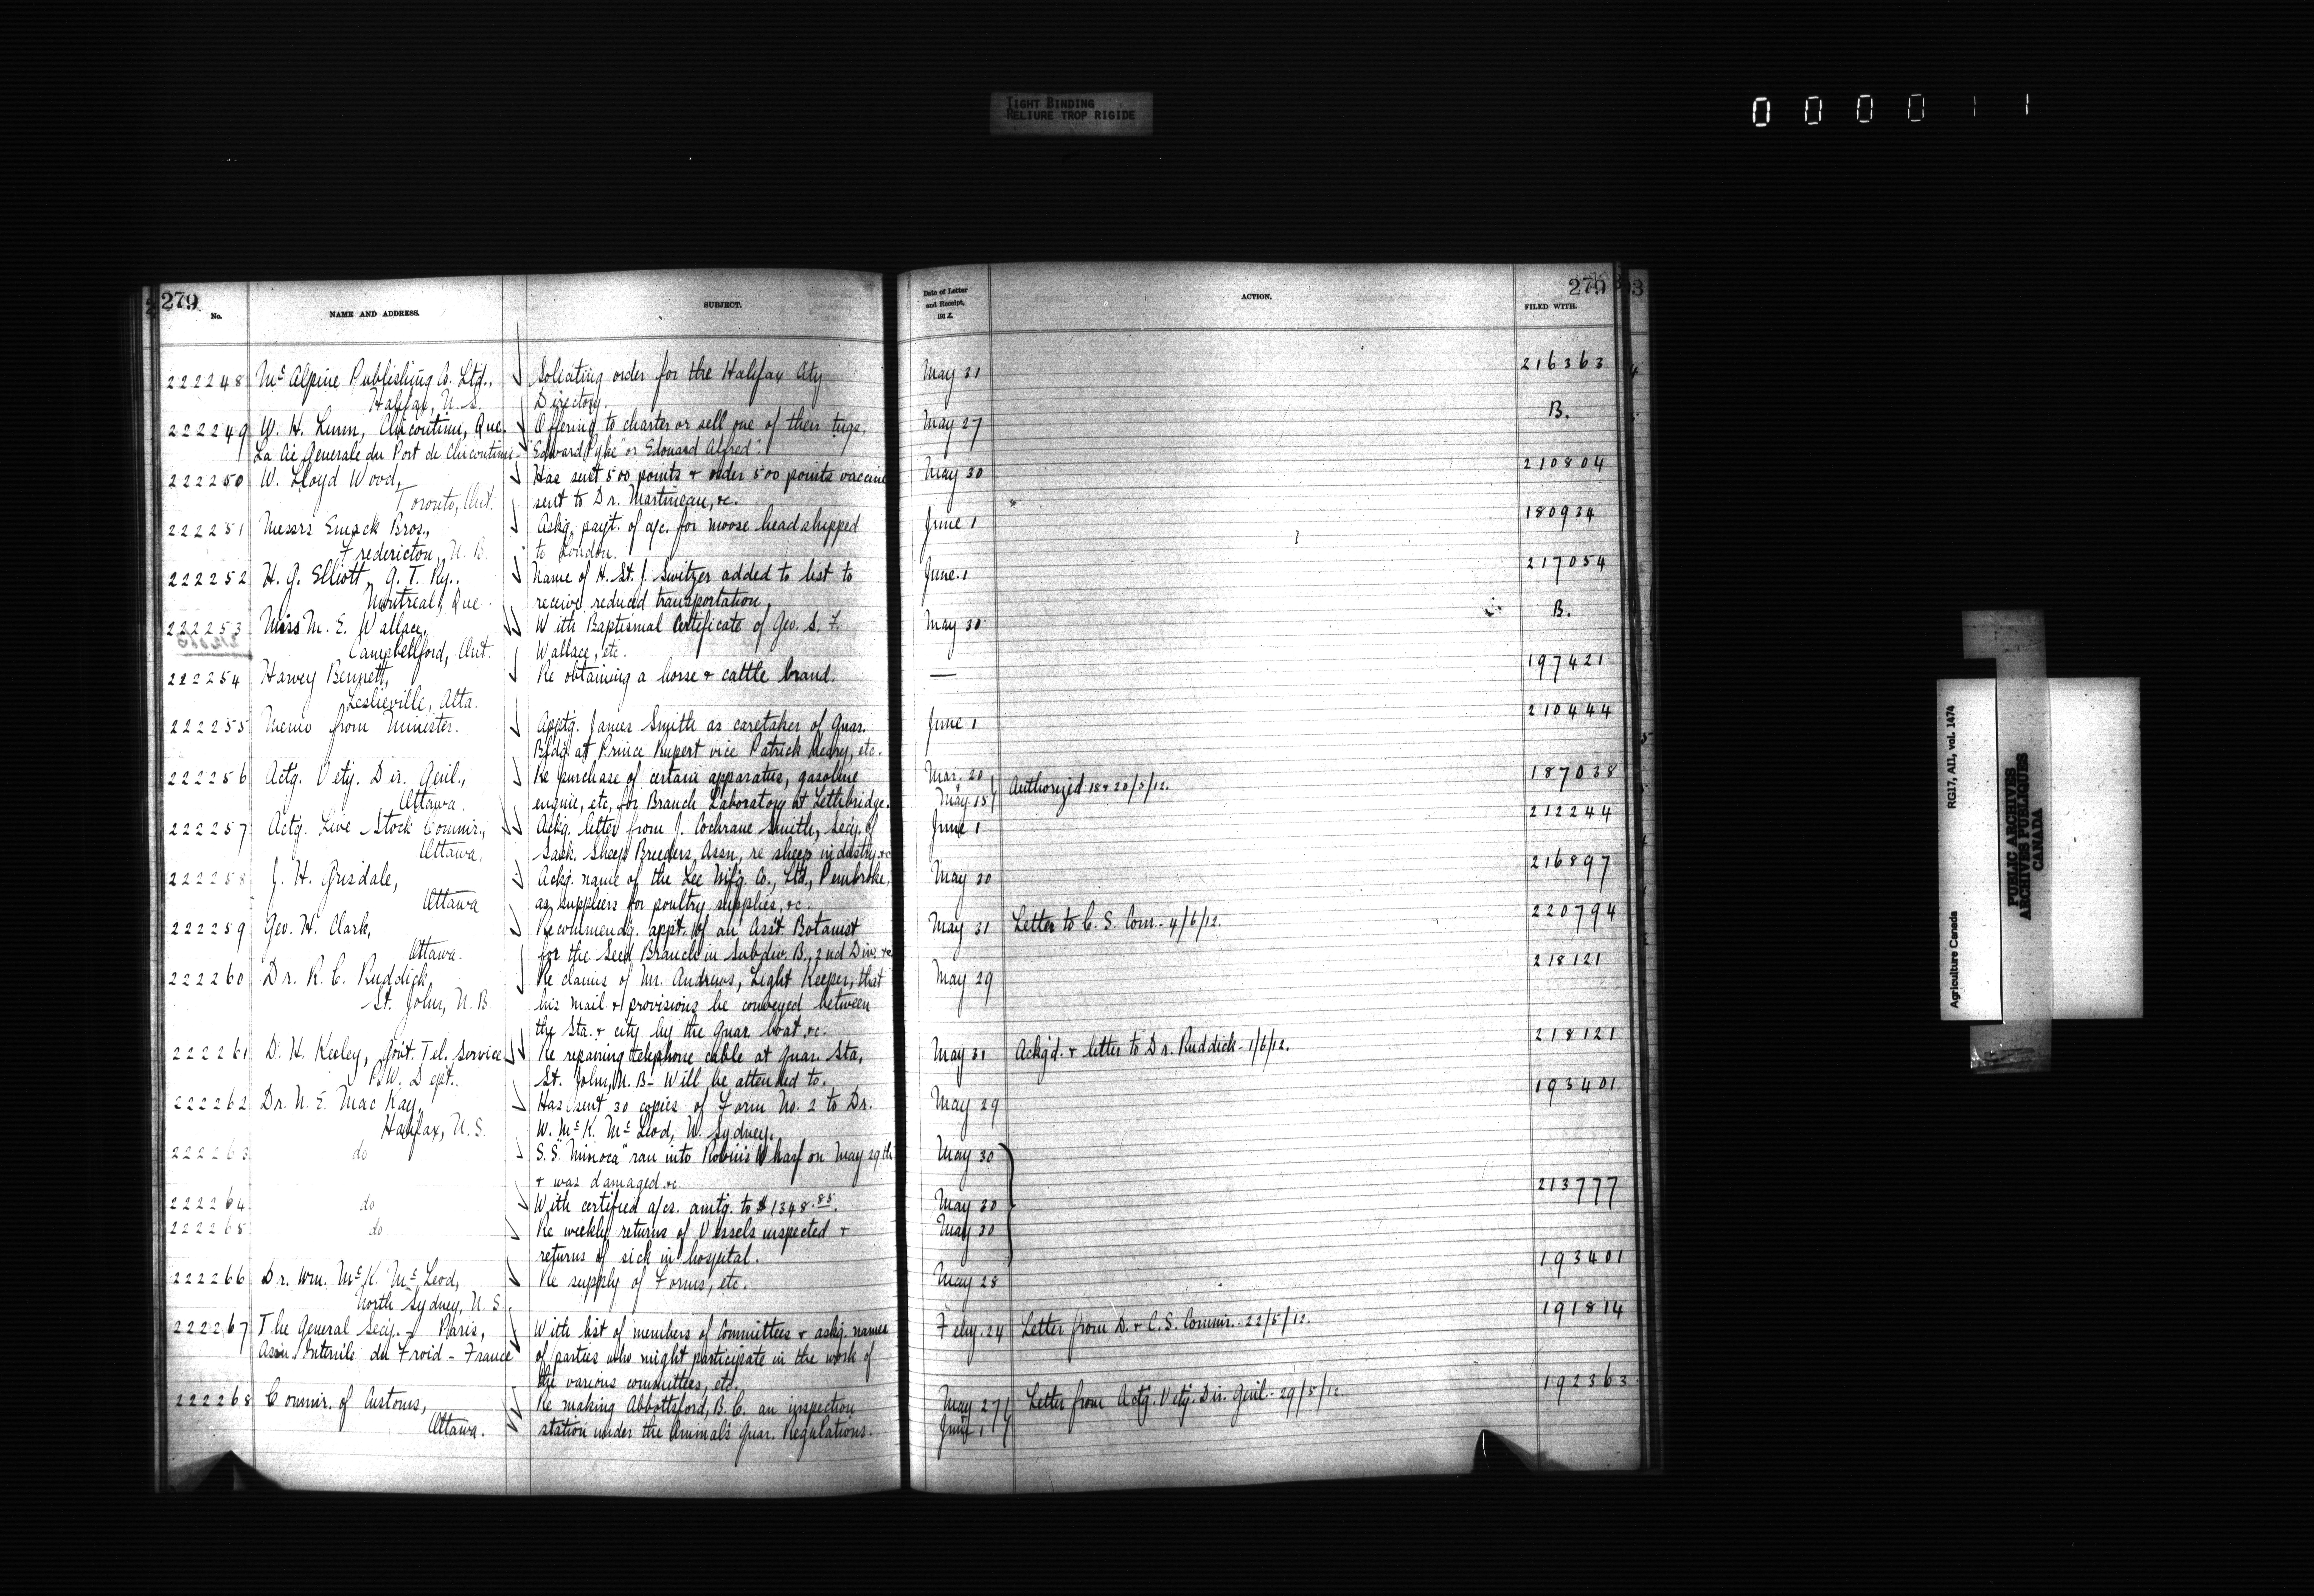 TIGHT BINDING
RELIURE TROP RIGIDE
0 0 0 0 1 1
279
No.
NAME AND ADDRESS.
SUBJECT.
222248 McAlpine Publishing Co. Ltd., Soliciting order for the Halifax City
Halifax, N.S. Directory.
222249 W. H. Linn, Chicoutimi, Que. Offering to charter or sell one of their tugs,
La Cie Generale du Port de Chicoutimi - "Edward Pyke" or Edouard Alfred".
222250 W. Lloyd Wood, Has sent 500 points & order 500 points vaccine
Toronto, Ont. sent to Dr. Martineau, &c.
222251 Messrs Emack Bros., Askg. payt. of a/c. for moose head shipped
Fredericton, N.B. to London.
222252 H. G. Elliott, G. T. Ry., Name of H. St. J. Switzer added to list to
Montreal, Que receive reduced transportation.
222253 Miss M. E. Wallace, With Baptismal Certificate of Geo. S. F.
Campbellford, Ont. Wallace, etc.
222254 Harvey Bennett, Re obtaining a horse & cattle brand.
Leslieville, Alta.
222255 Memo from Minister. Apptg. James Smith as caretaker of Quar.
Bldg. at Prince Rupert vice Patrick etc.
222256 Actg. Vety. Dir. Genl., Re purchase of certain apparatus, gasoline
Ottawa. engine, etc, for Branch Laboratory at Lethbridge.
222257 Actg. Live Stock Commr., Ackg. letter from J. Cochrane Smith, Secy. of
Ottawa. Sask. Sheep Breeders Assn, re sheep industry &c
222258 J. H. Grisdale, Ackg. name of the Lee Mfg. Co., Ltd., Pembroke,
Ottawa as suppliers for poultry supplies, &c.
222259 Geo. H. Clark, Recommendg. appt. of an Asst. Botanist
Ottawa. for the Seed Branch in Subdiv. B, 2nd Div. &c
222260 Dr. R. C. Ruddick, Re claims of Mr. Andrews, Light Keeper, that
St. John, N.B. his mail & provisions be conveyed between
the Sta. & city by the Quar. boat &c.
222261 D. H. Keeley, Govt. Tel. Service Re repairing telephone cable at Quar. Sta,
P.W. Dept.. St. John, N. B - Will be attended to.
222262 Dr. N. E. MacKay, Has sent 30 copies of Form No. 2 to Dr.
Halifax, N.S. W. McK. McLeod, N. Sydney.
222263 do S.S. "Minoca" ran into Robin's Wharf on May 29th
& was damaged &c
222264 do With certified a/cs. amtg. to $1348.85.
222265 do Re weekly returns of Vessels inspected &
returns of sick in hospital.
222266 Dr. Wm. McK. McLeod, Re supply of Forms, etc.
North Sydney, N.S.
222267 The General Secy. - Paris, With list of members of Committees & askg. names
Assn. Internle du Froid - France of parties who might participate in the work of
the various committees, etc.
222268 Commr. of Customs, Re making Abbottsford, B.C. an inspection
Ottawa. station under the Animals Quar. Regulations.
279
Date of Letter and Receipt, 1912.
ACTION.
FILED WITH.
May 31 216363
May 27 B.
May 30 210804
June 1 180934
June 1 217054
May 30 B.
— 197421
June 1 210444
Mar. 20 Authorized 18 & 20/5/12. 187038
May 15
June 1 212244
May 30 216897
May 31 Letter to C. S. Com. - 4/6/12. 220794
May 29 218121
May 31 Ackg'd. & letter to Dr. Ruddick - 1/6/12. 218121
May 29 193401
May 30
May 30 213777
May 30
May 28 193401
Feby. 24 Letter from D. & C.S. Commr. - 22/5/12. 191814
May 27 Letter from Actg. Vety. Dir. Genl. - 29/5/12. 192363
June 1
Agriculture Canada
RG17, AII, vol. 1474
PUBLIC ARCHIVES
ARCHIVES PUBLIQUES
CANADA